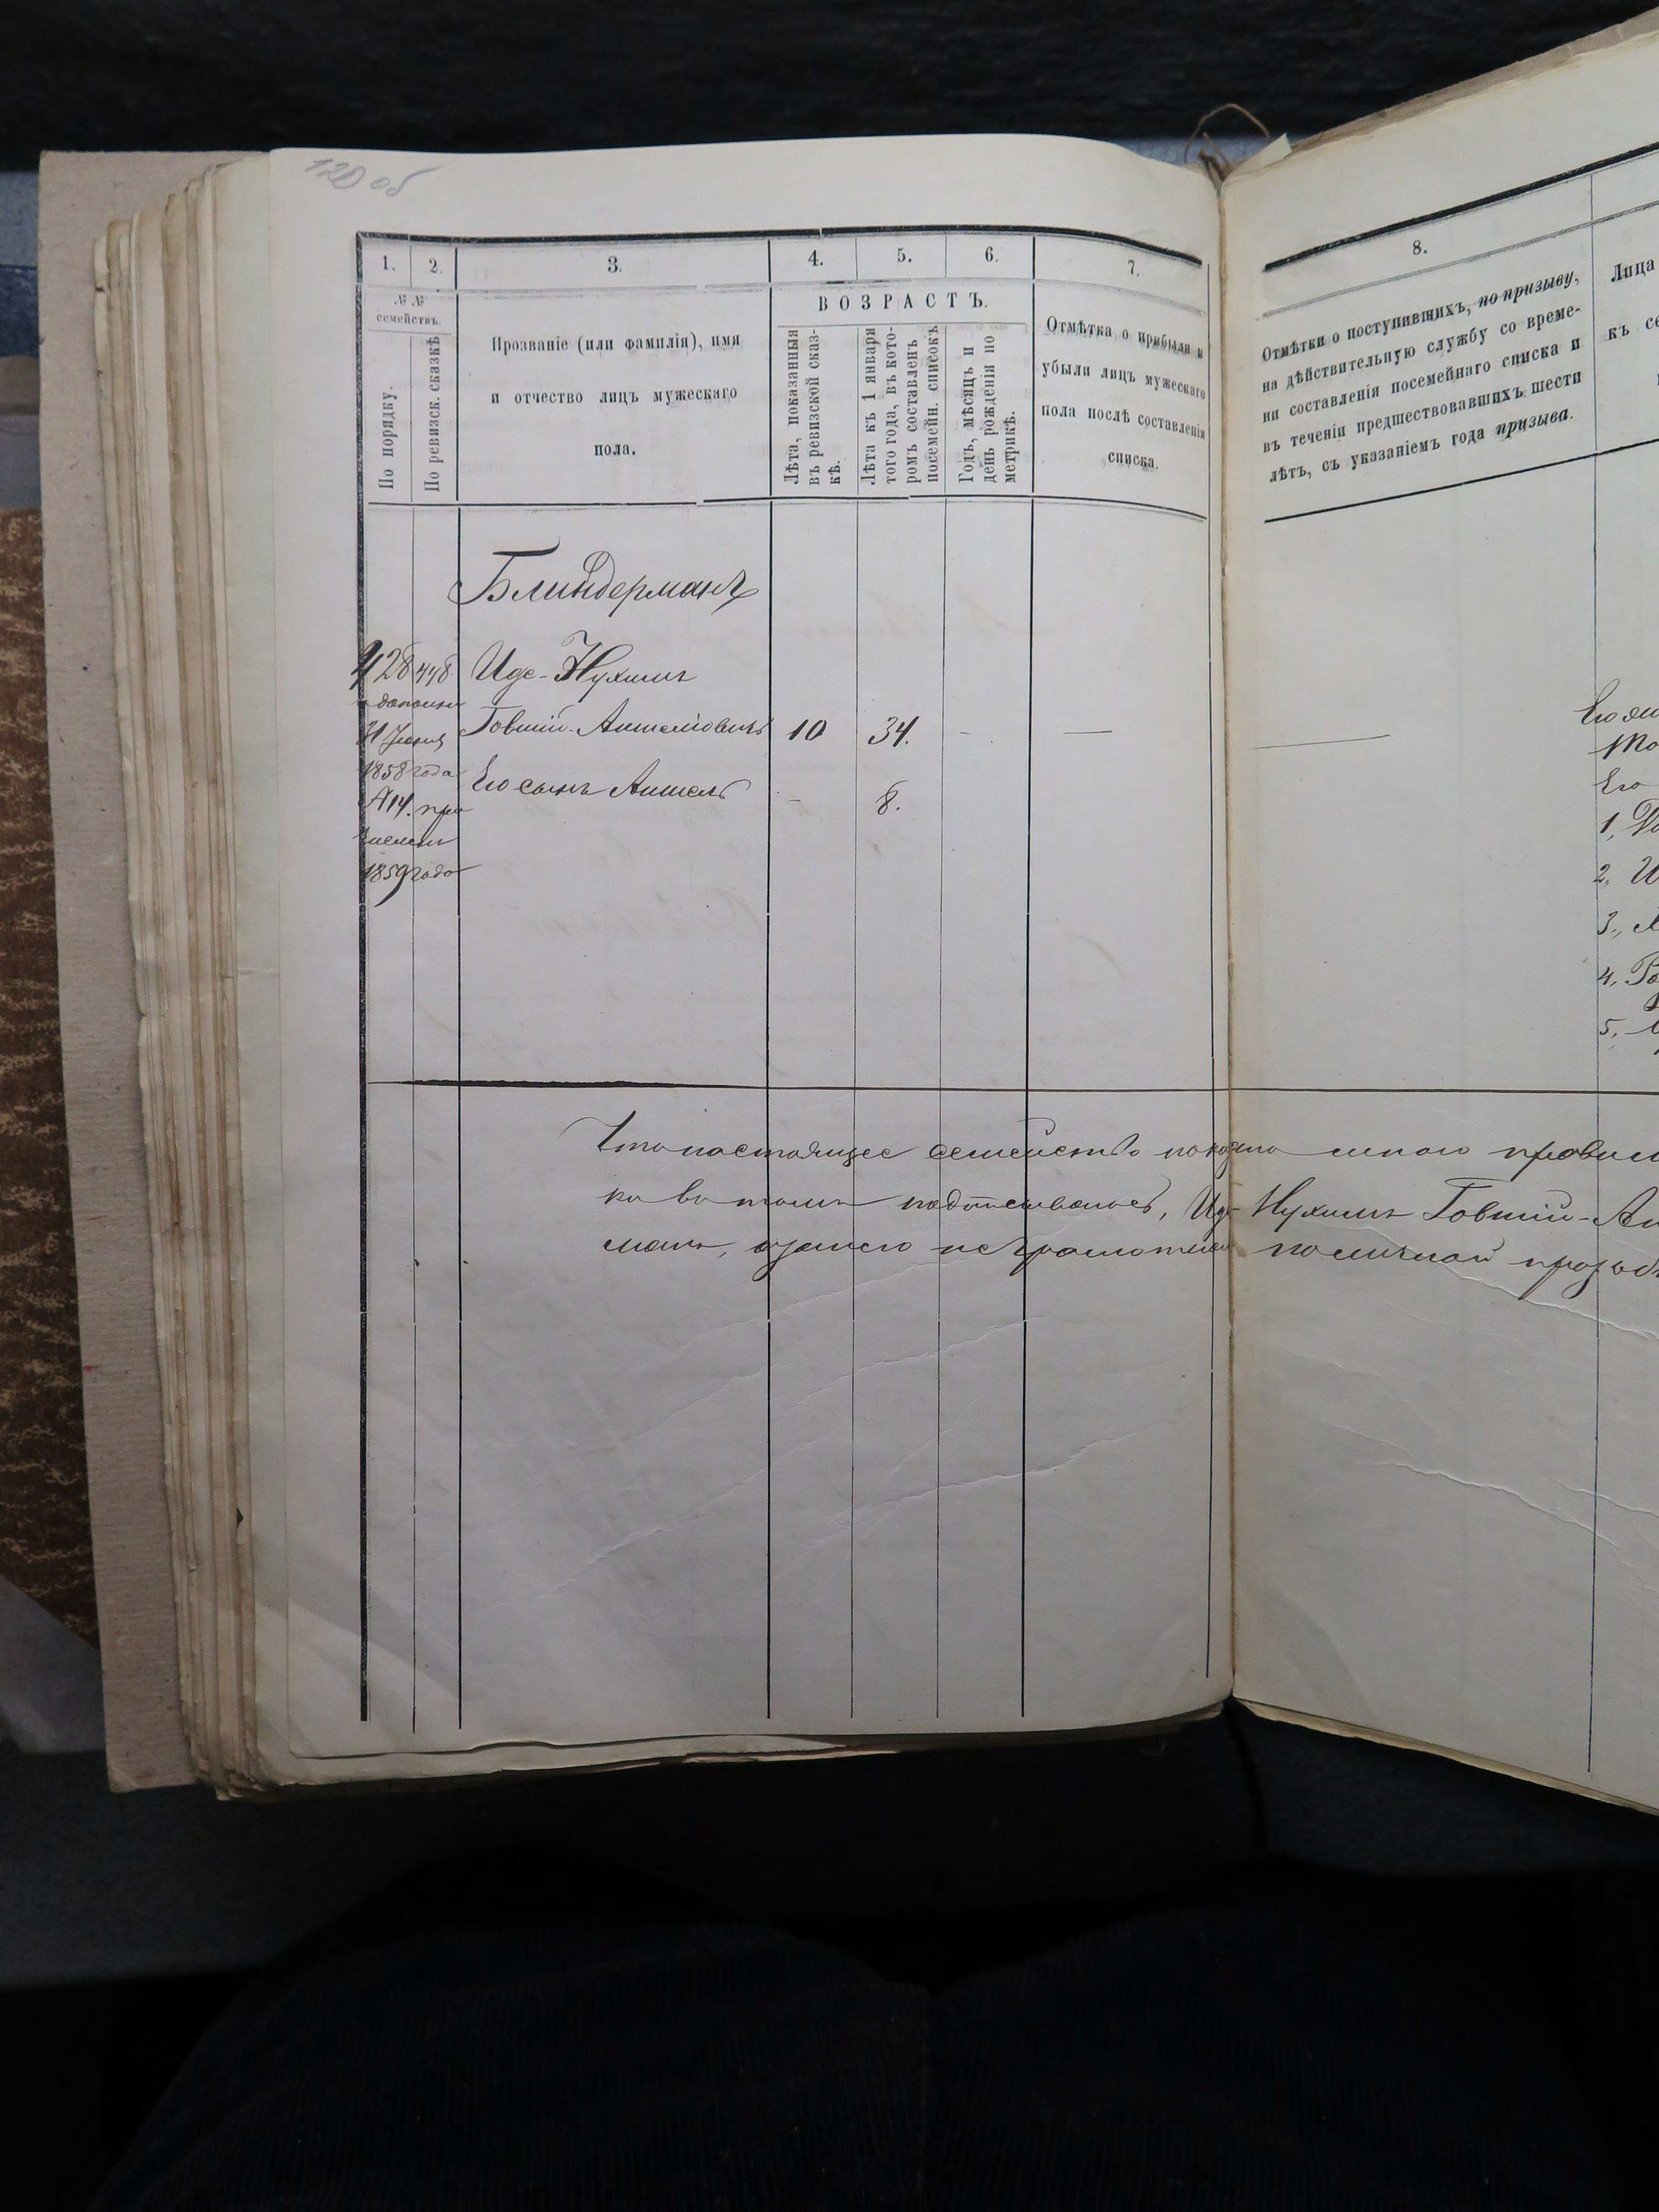 120 об
1. 2. 3. 4. 5. 6. 7.
№ №
семействъ.
По порядку.
По ревизск. сказкѣ
Прозваніе (или фамилія), имя
и отчество лицъ мужескаго
пола.
ВОЗРАСТЪ.
Лѣта, показанныя
въ ревизской сказ-
кѣ.
Лѣта къ 1 января
того года, въ кото-
ромъ составленъ
посемейн. списокъ
Годъ, мѣсяцъ и
день рожденія по
метрикѣ.
Отмѣтка о прибыли и
убыли лицъ мужескаго
пола послѣ составленія
списка.
Блиндерманъ
428 448 Иде-Нухимъ
Говшій-Аншелювичъ 10 34. - —
Его сынъ Аншель - 8.
1858 года
№ 14. при
1859 года
Что настоящее семейство показано мною правил
но въ томъ подписываюсь, Иде-Нухимъ Говшій-Ан
манъ, а за него неграмотнаго по личной прозьб
8.
Отмѣтки о поступившихъ, по призыву,
на дѣйствительную службу со време-
ни составленія посемейнаго списка и
въ теченіи предшествовавшихъ шести
лѣтъ, съ указаніемъ года призыва.
Лица
къ се
Его
1,
2,
3.,
4.
5.